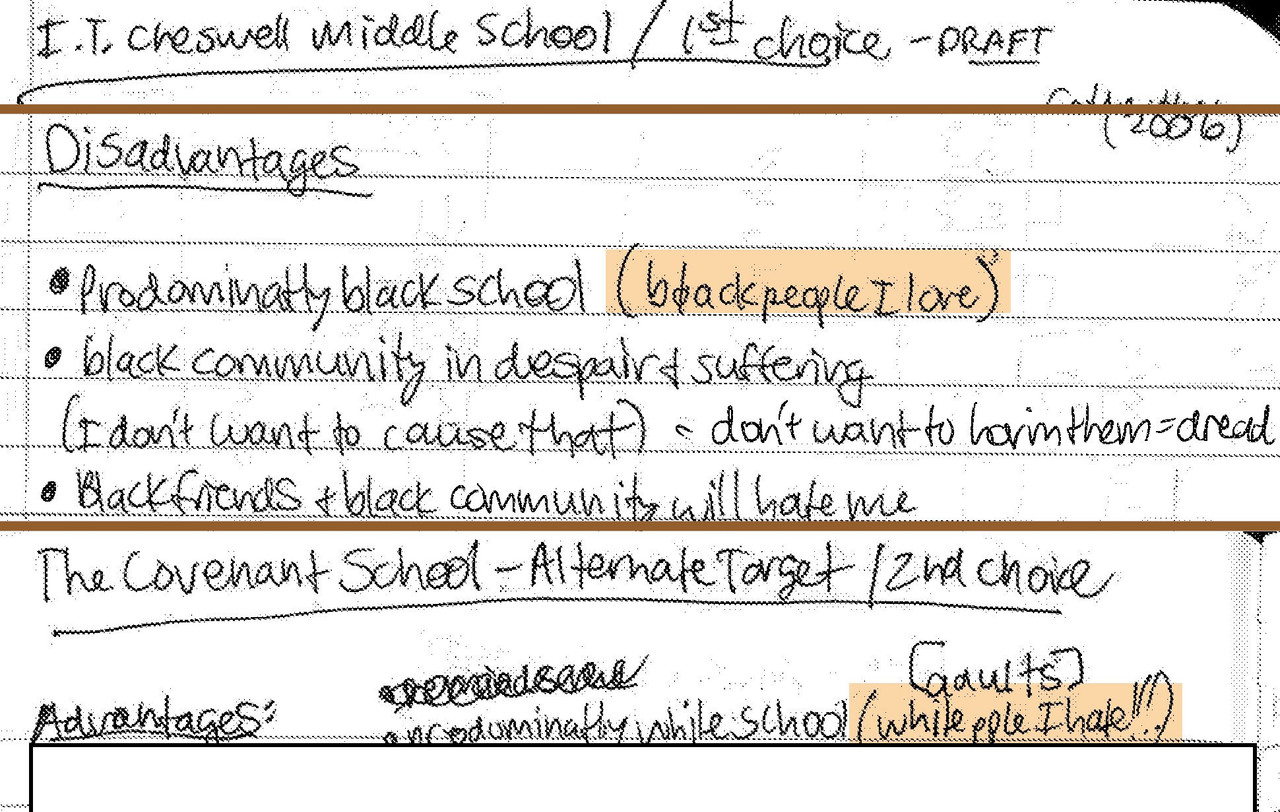 I.T. Creswell Middle School / 1st choice - DRAFT
(2006)
Disadvantages
• Prodominatly black school (black people I love)
• black community in despair & suffering
(I don't want to cause that) - don't want to harm them = dread
• Black friends + black community will hate me
The Covenant School - Alternate Target / 2nd choice
[adults]
Advantages: • prodominatly white school (white pple I hate!!)